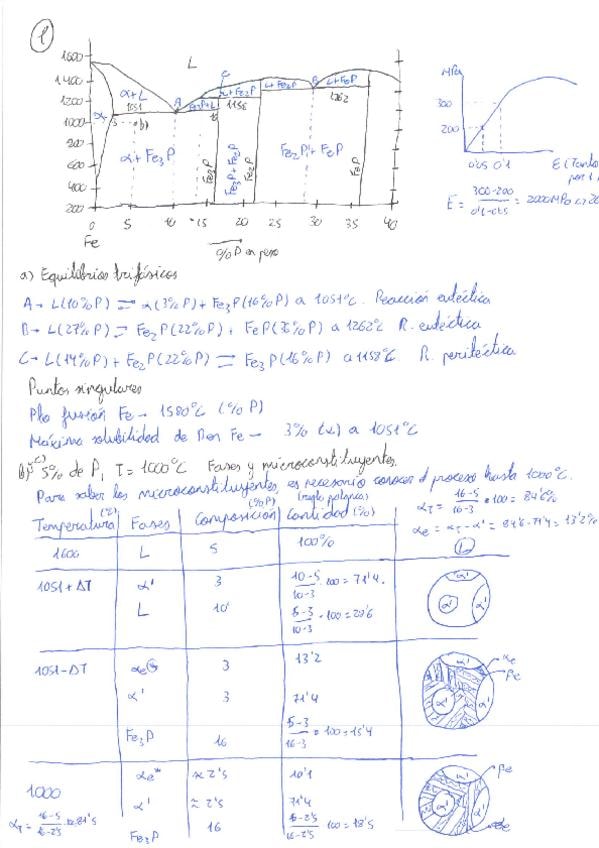 1
1600
1400
1200
1000
800
600
400
200
L
α+L
1051
A
C
Fe3P+L
L+Fe2P
1158
L+Fe2P
B
L+FeP
1262
α
3
16
α+Fe3P
Fe3P
Fe3P+Fe2P
Fe2P
Fe2P+FeP
FeP
0 5 10 15 20 25 30 35 40
Fe
%P en peso
MPa
300
200
0'05 0'1
E = 300-200 / 0'1-0'05 = 2000MPa
a) Equilibrios trifásicos
A→ L(10%P) ⇌ α(3%P) + Fe3P(16%P) a 1051ºC. Reacción eutéctica
B→ L(27%P) ⇌ Fe2P(22%P) + FeP(36%P) a 1262ºC R. eutéctica
C→ L(14%P) + Fe2P(22%P) ⇌ Fe3P(16%P) a 1158ºC R. peritéctica
Puntos singulares
Pto fusión Fe → 1580ºC (0%P)
Máxima solubilidad de P en Fe → 3% (α) a 1051ºC
b) c) 5% de P, T = 1000ºC Fases y microconstituyentes.
Para saber los microconstituyentes, es necesario conocer el proceso hasta 1000ºC.
αT = 16-5 / 16-3 · 100 = 84'6%
αe = αT - α' = 84'6-71'4 = 13'2%
Temperatura (ºC) Fases Composición (%P) Cantidad (%)
1600 L 5 100% L
1051+ΔT α' 3 10-5 / 10-3 · 100 = 71'4. α' α' α'
L 10 5-3 / 10-3 · 100 = 28'6
1051-ΔT αe 3 13'2 α' αe
α' 3 71'4 α' α' Pe
Fe3P 16 5-3 / 16-3 · 100 = 15'4
1000 αe* ≈ 2'5 10'1 α' Pe
α' ≈ 2'5 71'4 α' α'
αT = 16-5 / 16-2'5 = 81'5 Fe3P 16 100 = 18'5 αe